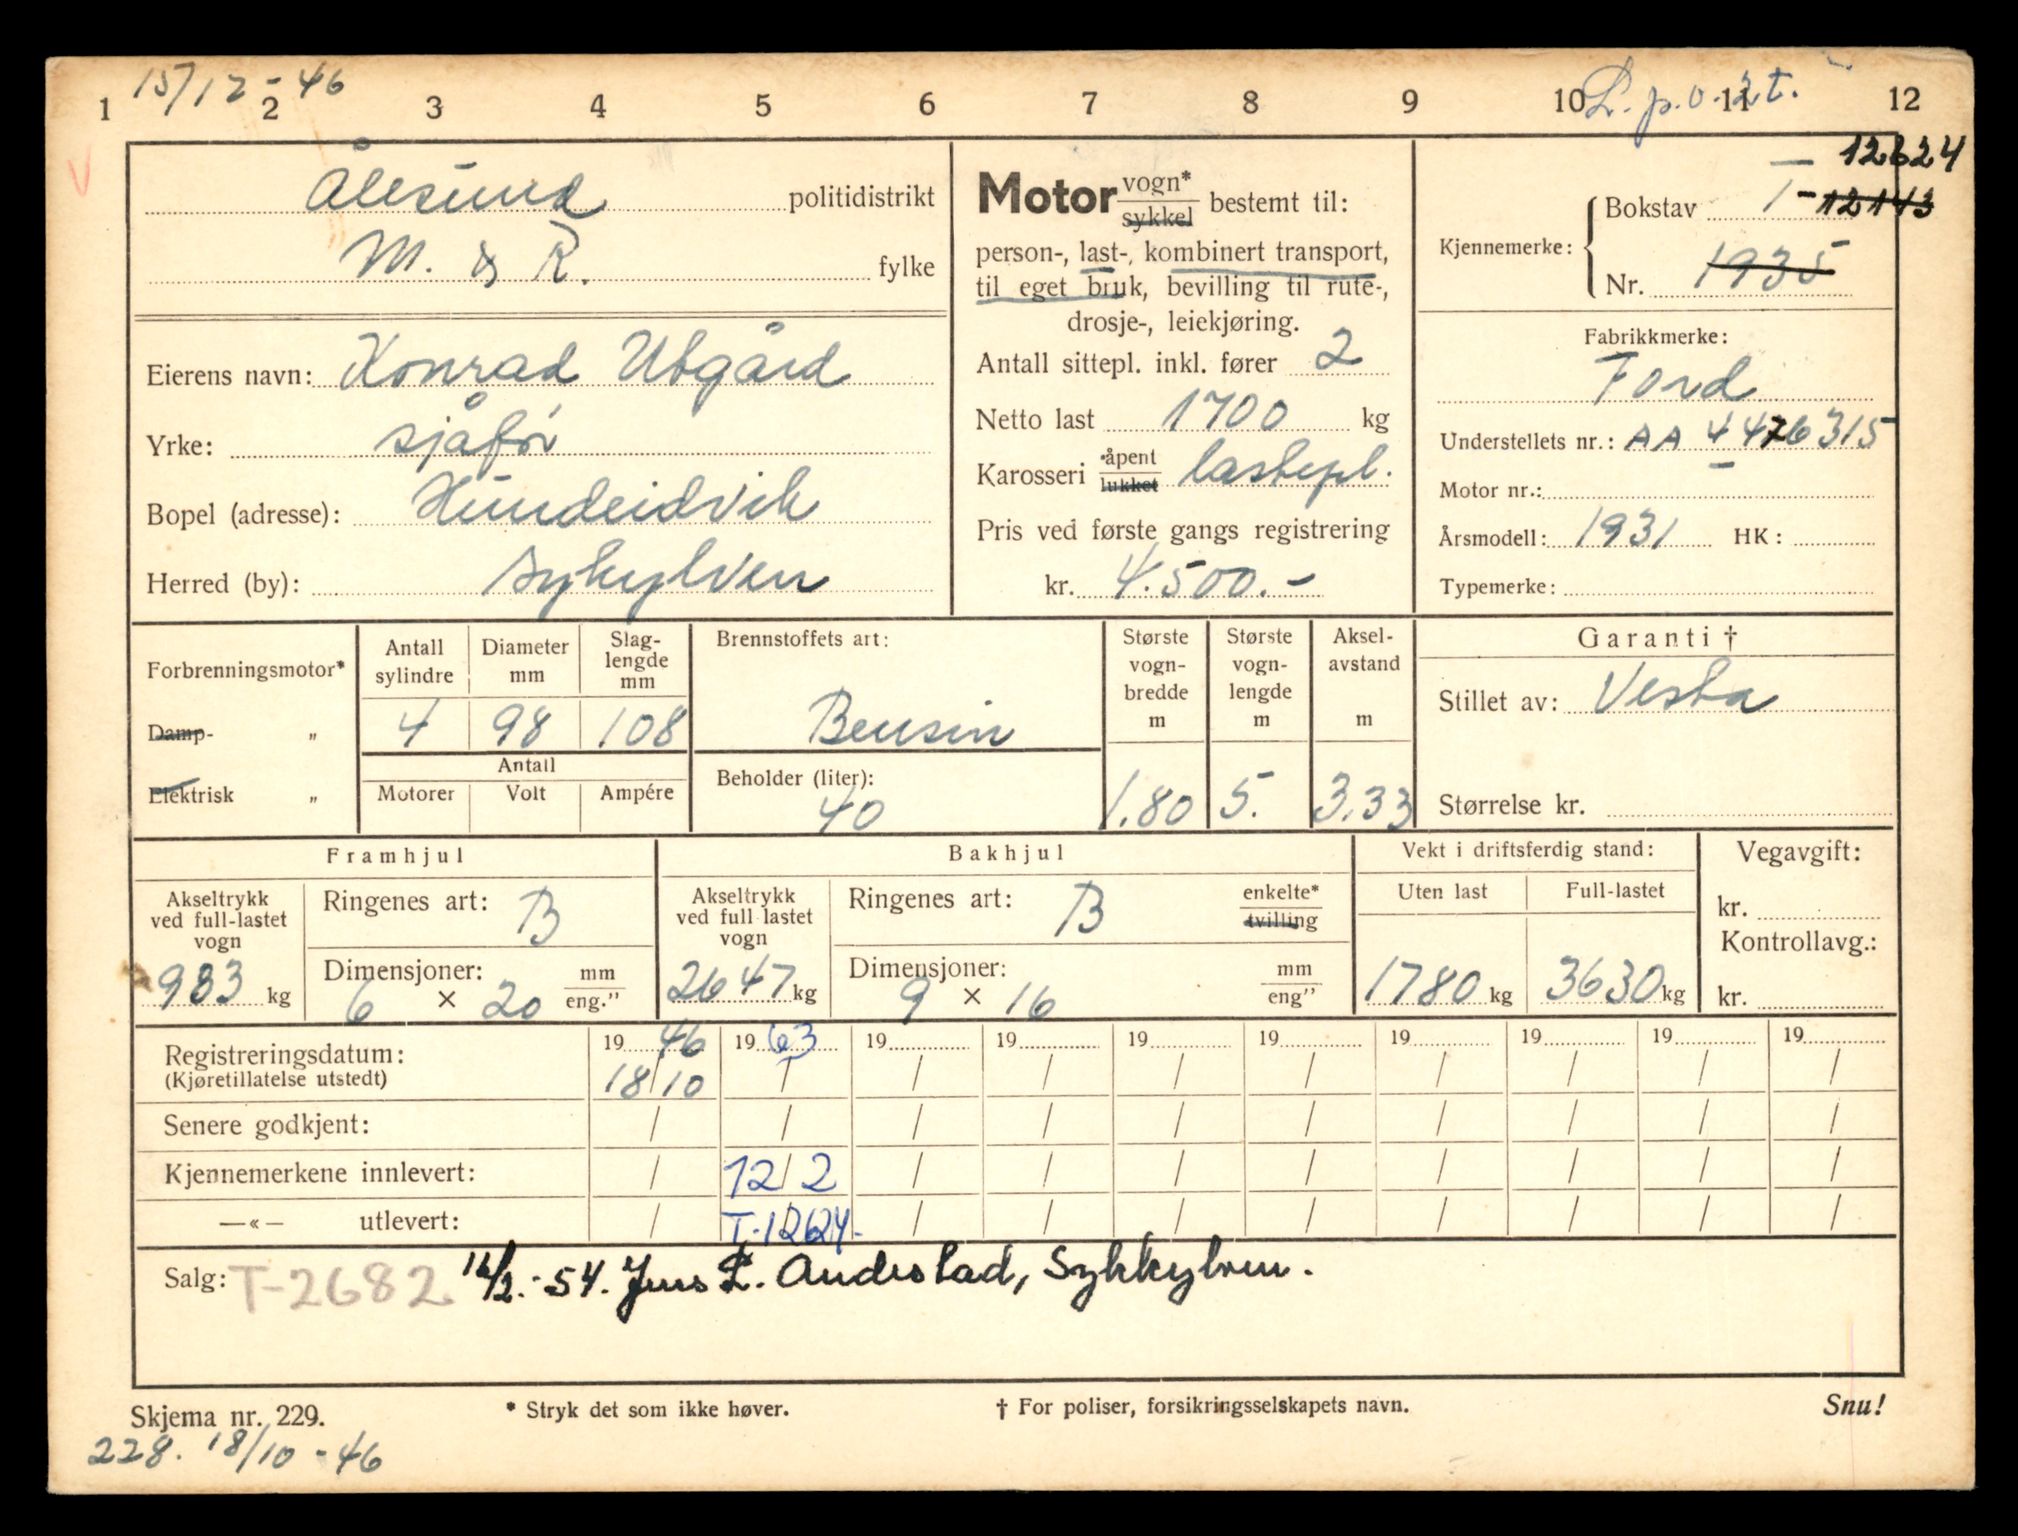 15/12-46
L.p.o. 2t.
1 2 3 4 5 6 7 8 9 10 11 12
V
Ålesund politidistrikt
M. & R. fylke
Eierens navn: Konrad Utgård
Yrke: sjåfør
Bopel (adresse): Hundeidvik
Herred (by): Sykylven
Motor vogn* / sykkel bestemt til:
person-, last-, kombinert transport,
til eget bruk, bevilling til rute-,
drosje-, leiekjøring.
Antall sittepl. inkl. fører 2
Netto last 1700 kg
Karosseri *åpent / lukket lastepl.
Pris ved første gangs registrering
kr. 4.500.-
— 12624
Kjennemerke: Bokstav T - 12143
Nr. 1935
Fabrikkmerke:
Ford
Understellets nr.: AA 4476315
Motor nr.: —
Årsmodell: 1931 HK:
Typemerke:
Forbrenningsmotor*
Damp- "
Elektrisk "
Antall sylindre Diameter mm Slag-lengde mm
4 98 108
Antall
Motorer Volt Ampére
Brennstoffets art:
Bensin
Beholder (liter):
40
Største vogn-bredde m
1.80
Største vogn-lengde m
5.
Aksel-avstand m
3.33
Garanti †
Stillet av: Vesta
Størrelse kr.
Framhjul
Akseltrykk ved full-lastet vogn
983 kg
Ringenes art: B
Dimensjoner: mm / eng."
6 × 20
Bakhjul
Akseltrykk ved full lastet vogn
2647 kg
Ringenes art: B enkelte* / tvilling
Dimensjoner: mm / eng"
9 × 16
Vekt i driftsferdig stand:
Uten last Full-lastet
1780 kg 3630 kg
Vegavgift:
kr.
Kontrollavg.:
kr.
Registreringsdatum: 1946 1963 19 19 19 19 19 19 19 19
(Kjøretillatelse utstedt) 18/10 / / / / / / / / /
Senere godkjent: / / / / / / / / / /
Kjennemerkene innlevert: / 12/2 / / / / / / / /
—«— utlevert: / T-12624- / / / / / / / /
Salg: T-2682 /2.-54. Jens L. Andestad, Sykkylven.
Skjema nr. 229. * Stryk det som ikke høver. † For poliser, forsikringsselskapets navn. Snu!
228. 18/10-46